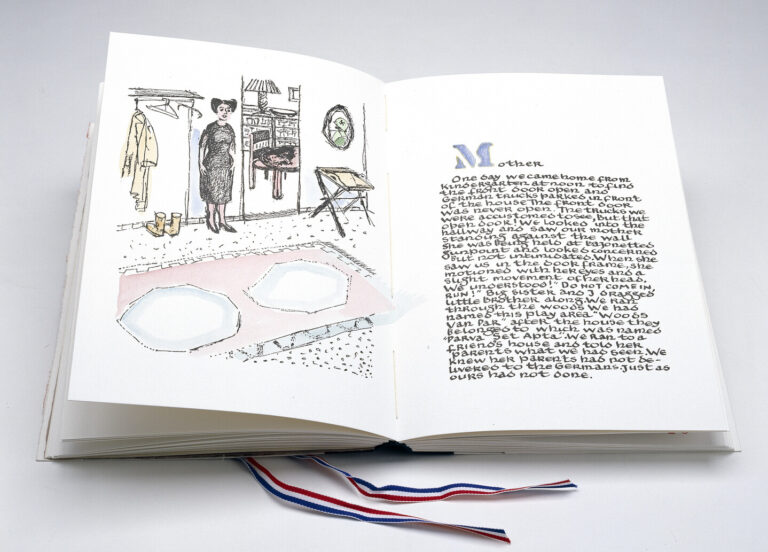 Mother
One day we came home from
kindergarten at noon to find
the front door open and
German trucks parked in front
of the house. The front door
was never open. The trucks we
were accustomed to see, but that
open door! We looked into the
hallway and saw our mother
standing against the wall.
She was being held at bajonetted
gunpoint and looked concerned
but not intimidated. When she
saw us in the door frame, she
motioned with her eyes and a
slight movement of her head.
We understood! "Do not come in,
run!" Big sister and I dragged
little brother along. We ran
through the woods. We had
named this play area "Woods
van Par" after the house they
belonged to which was named
"Parva Set Apta". We ran to a
friend's house and told her
parents what we had seen. We
knew her parents had not be-
livered to the Germans. Just as
ours had not done.